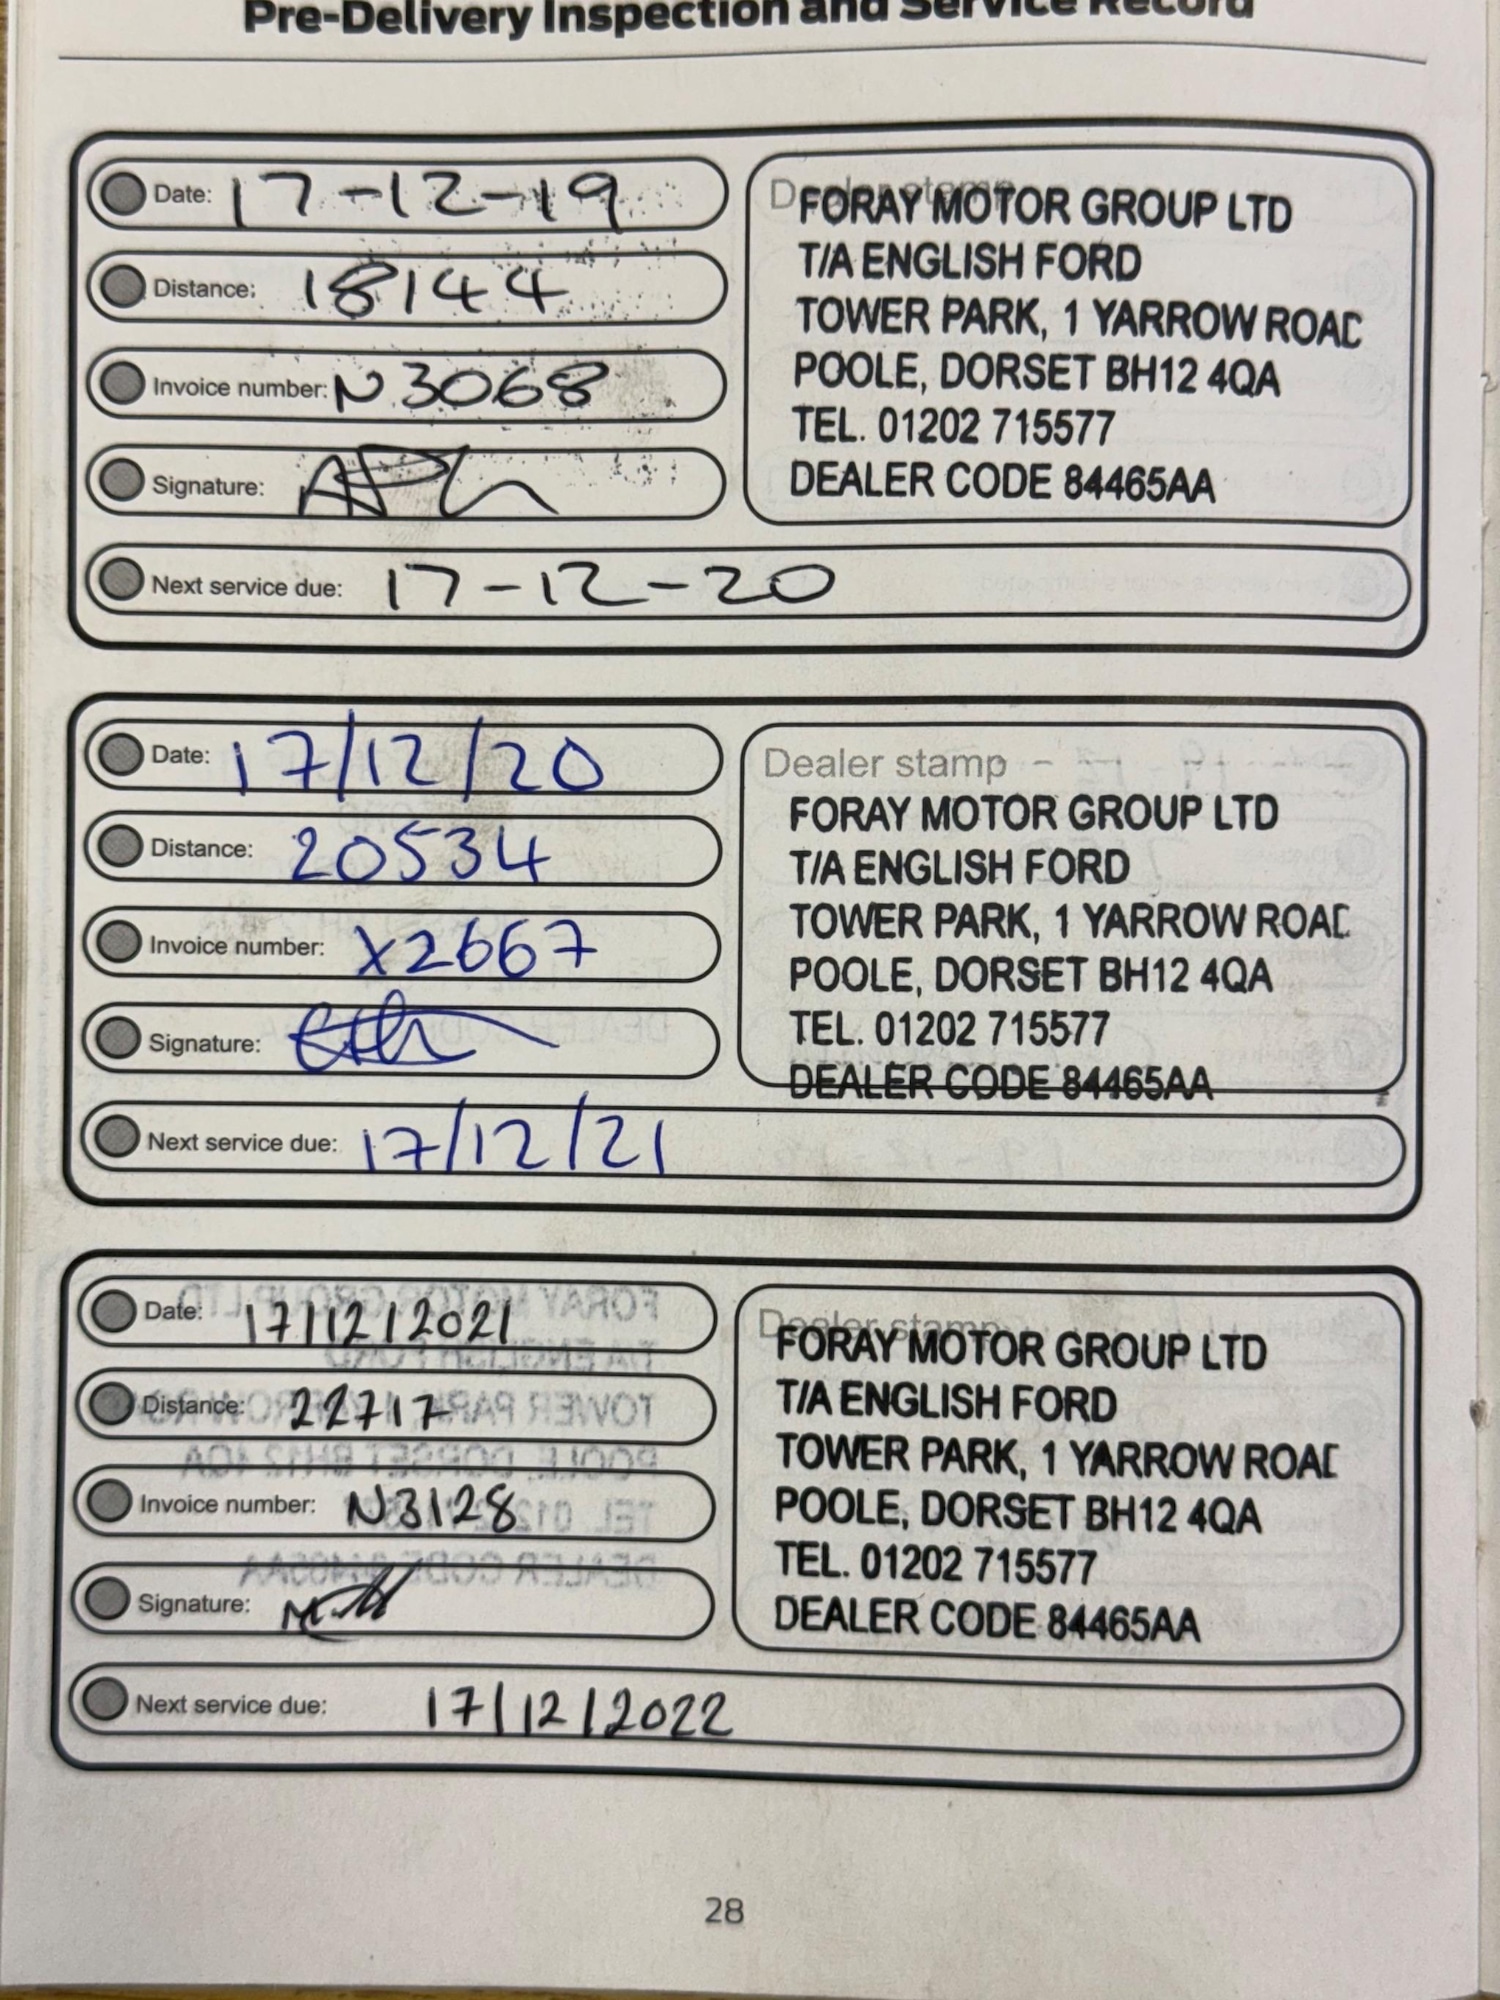 Pre-Delivery Inspection and Service Record
Date: 17-12-19
Distance: 18144
Invoice number: N3068
Signature:
Dealer stamp
FORAY MOTOR GROUP LTD
T/A ENGLISH FORD
TOWER PARK, 1 YARROW ROAD
POOLE, DORSET BH12 4QA
TEL. 01202 715577
DEALER CODE 84465AA
Next service due: 17-12-20
Date: 17/12/20
Distance: 20534
Invoice number: X2667
Signature:
Dealer stamp
FORAY MOTOR GROUP LTD
T/A ENGLISH FORD
TOWER PARK, 1 YARROW ROAD
POOLE, DORSET BH12 4QA
TEL. 01202 715577
DEALER CODE 84465AA
Next service due: 17/12/21
Date: 17/12/2021
Distance: 22717
Invoice number: N3128
Signature:
Dealer stamp
FORAY MOTOR GROUP LTD
T/A ENGLISH FORD
TOWER PARK, 1 YARROW ROAD
POOLE, DORSET BH12 4QA
TEL. 01202 715577
DEALER CODE 84465AA
Next service due: 17/12/2022
28